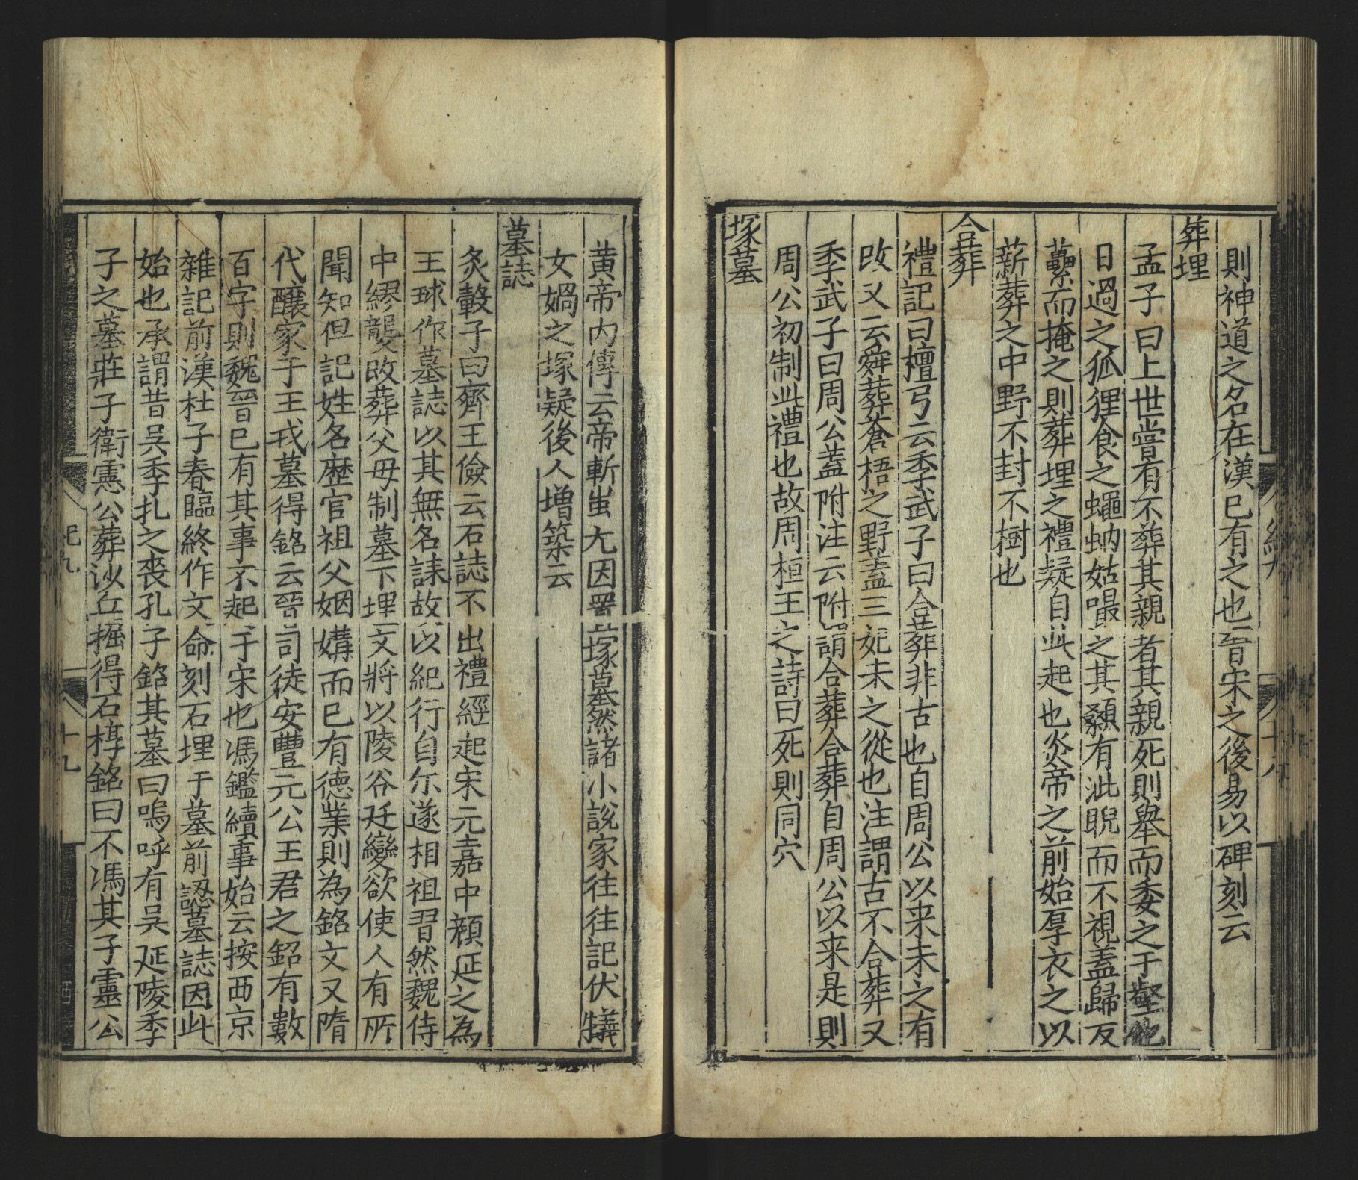 則神道之名在漢已有之也晉宋之後易以碑刻云
葬埋
孟子曰上世嘗有不葬其親者其親死則舉而委之于壑他
日過之狐狸食之蠅蚋姑嘬之其顙有泚睨而不視蓋歸反
虆而掩之則葬埋之禮疑自此起也炎帝之前始厚衣之以
薪葬之中野不封不樹也
合葬
禮記曰檀弓云季武子曰合葬非古也自周公以来未之有
改又云舜葬蒼梧之野蓋三妃未之從也注謂古不合葬又
季武子曰周公蓋附注云附謂合葬合葬自周公以来是則
周公初制此禮也故周桓王之詩曰死則同穴
塚墓
黄帝内傳云帝斬蚩尤因置塚墓然諸小說家往往記伏犠
女媧之塚疑後人增築云
墓誌
炙轂子曰齊王儉云石誌不出禮經起宋元嘉中顏延之為
王球作墓誌以其無名誄故以紀行自尔遂相祖習然魏侍
中繆襲改葬父母制墓下埋文將以陵谷迁變欲使人有所
聞知但記姓名歷官祖父姻媾而已有德業則為銘文又隋
代釀家于王戎墓得銘云晉司徒安豊元公王君之銘有數
百字則魏晉已有其事不起于宋也馮鑑續事始云按西京
雜記前漢杜子春臨終作文命刻石埋于墓前認墓誌因此
始也承謂昔吳季扎之喪孔子銘其墓曰嗚呼有吳延陵季
子之墓莊子衛靈公葬沙丘掘得石槨銘曰不馮其子靈公
十九